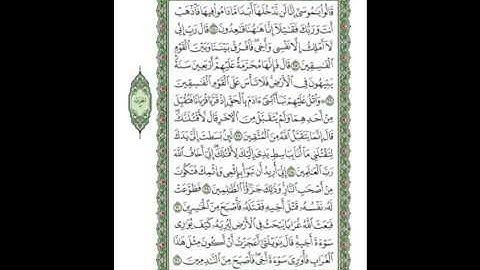 قَالُوا۟ يَـٰمُوسَىٰٓ إِنَّا لَن نَّدْخُلَهَآ أَبَدًا مَّا دَامُوا۟ فِيهَا فَٱذْهَبْ
أَنتَ وَرَبُّكَ فَقَـٰتِلَآ إِنَّا هَـٰهُنَا قَـٰعِدُونَ قَالَ رَبِّ إِنِّى
لَآ أَمْلِكُ إِلَّا نَفْسِى وَأَخِى فَٱفْرُقْ بَيْنَنَا وَبَيْنَ ٱلْقَوْمِ
ٱلْفَـٰسِقِينَ قَالَ فَإِنَّهَا مُحَرَّمَةٌ عَلَيْهِمْ أَرْبَعِينَ سَنَةً
يَتِيهُونَ فِى ٱلْأَرْضِ فَلَا تَأْسَ عَلَى ٱلْقَوْمِ ٱلْفَـٰسِقِينَ
وَٱتْلُ عَلَيْهِمْ نَبَأَ ٱبْنَىْ ءَادَمَ بِٱلْحَقِّ إِذْ قَرَّبَا قُرْبَانًا فَتُقُبِّلَ
مِنْ أَحَدِهِمَا وَلَمْ يُتَقَبَّلْ مِنَ ٱلْـَٔاخَرِ قَالَ لَأَقْتُلَنَّكَ
قَالَ إِنَّمَا يَتَقَبَّلُ ٱللَّهُ مِنَ ٱلْمُتَّقِينَ لَئِنۢ بَسَطتَ إِلَىَّ يَدَكَ
لِتَقْتُلَنِى مَآ أَنَا۠ بِبَاسِطٍ يَدِىَ إِلَيْكَ لِأَقْتُلَكَ إِنِّىٓ أَخَافُ ٱللَّهَ
رَبَّ ٱلْعَـٰلَمِينَ إِنِّىٓ أُرِيدُ أَن تَبُوٓأَ بِإِثْمِى وَإِثْمِكَ فَتَكُونَ
مِنْ أَصْحَـٰبِ ٱلنَّارِ وَذَٰلِكَ جَزَٰٓؤُا۟ ٱلظَّـٰلِمِينَ فَطَوَّعَتْ
لَهُۥ نَفْسُهُۥ قَتْلَ أَخِيهِ فَقَتَلَهُۥ فَأَصْبَحَ مِنَ ٱلْخَـٰسِرِينَ
فَبَعَثَ ٱللَّهُ غُرَابًا يَبْحَثُ فِى ٱلْأَرْضِ لِيُرِيَهُۥ كَيْفَ يُوَٰرِى
سَوْءَةَ أَخِيهِ قَالَ يَـٰوَيْلَتَىٰٓ أَعَجَزْتُ أَنْ أَكُونَ مِثْلَ هَـٰذَا
ٱلْغُرَابِ فَأُوَٰرِىَ سَوْءَةَ أَخِى فَأَصْبَحَ مِنَ ٱلنَّـٰدِمِينَ